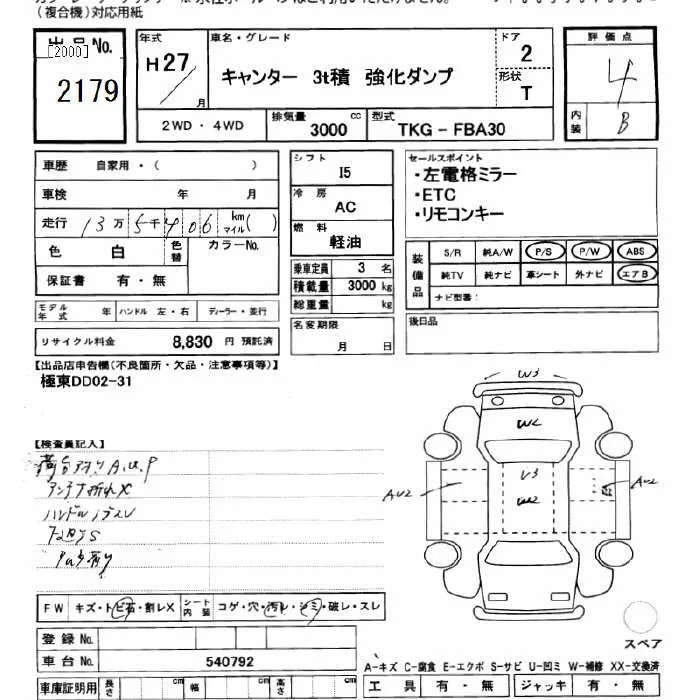 (複合機)対応用紙
出品No.
[2000]
2179
年式
H27/
月
車名・グレード
キャンター 3t積 強化ダンプ
ドア
2
形状
T
評価点
4
内装
B
2WD・4WD
排気量
3000
cc
型式
TKG-FBA30
車歴 自家用・( )
車検 年 月
走行 13万5千406 km マイル( )
色 白 色替 カラーNo.
保証書 有・無
シフト
I5
冷房
AC
燃料
軽油
乗車定員 3 名
積載量 3000 kg
総重量 kg
セールスポイント
・左電格ミラー
・ETC
・リモコンキー
装備品
S/R 純A/W P/S P/W ABS
純TV 純ナビ 革シート 外ナビ エアB
ナビ型番:
モデル年式 年 ハンドル 左・右 ディーラー・並行
リサイクル料金 8,830 円 預託済
名変期限
月 日
後日品
【出品店申告欄(不良箇所・欠品・注意事項等)】
極東DD02-31
【検査員記入】
W3
W2
V3
W2
AU2
AU2
FW キズ・トビ石・割レX シート内装 コゲ・穴・汚レ・シミ・破レ・スレ
登録No.
車台No. 540792
車庫証明用 長さ cm 幅 cm 高さ cm
スペア
A-キズ C-腐食 E-エクボ S-サビ U-凹ミ W-補修 XX-交換済
工具 有・無 ジャッキ 有・無